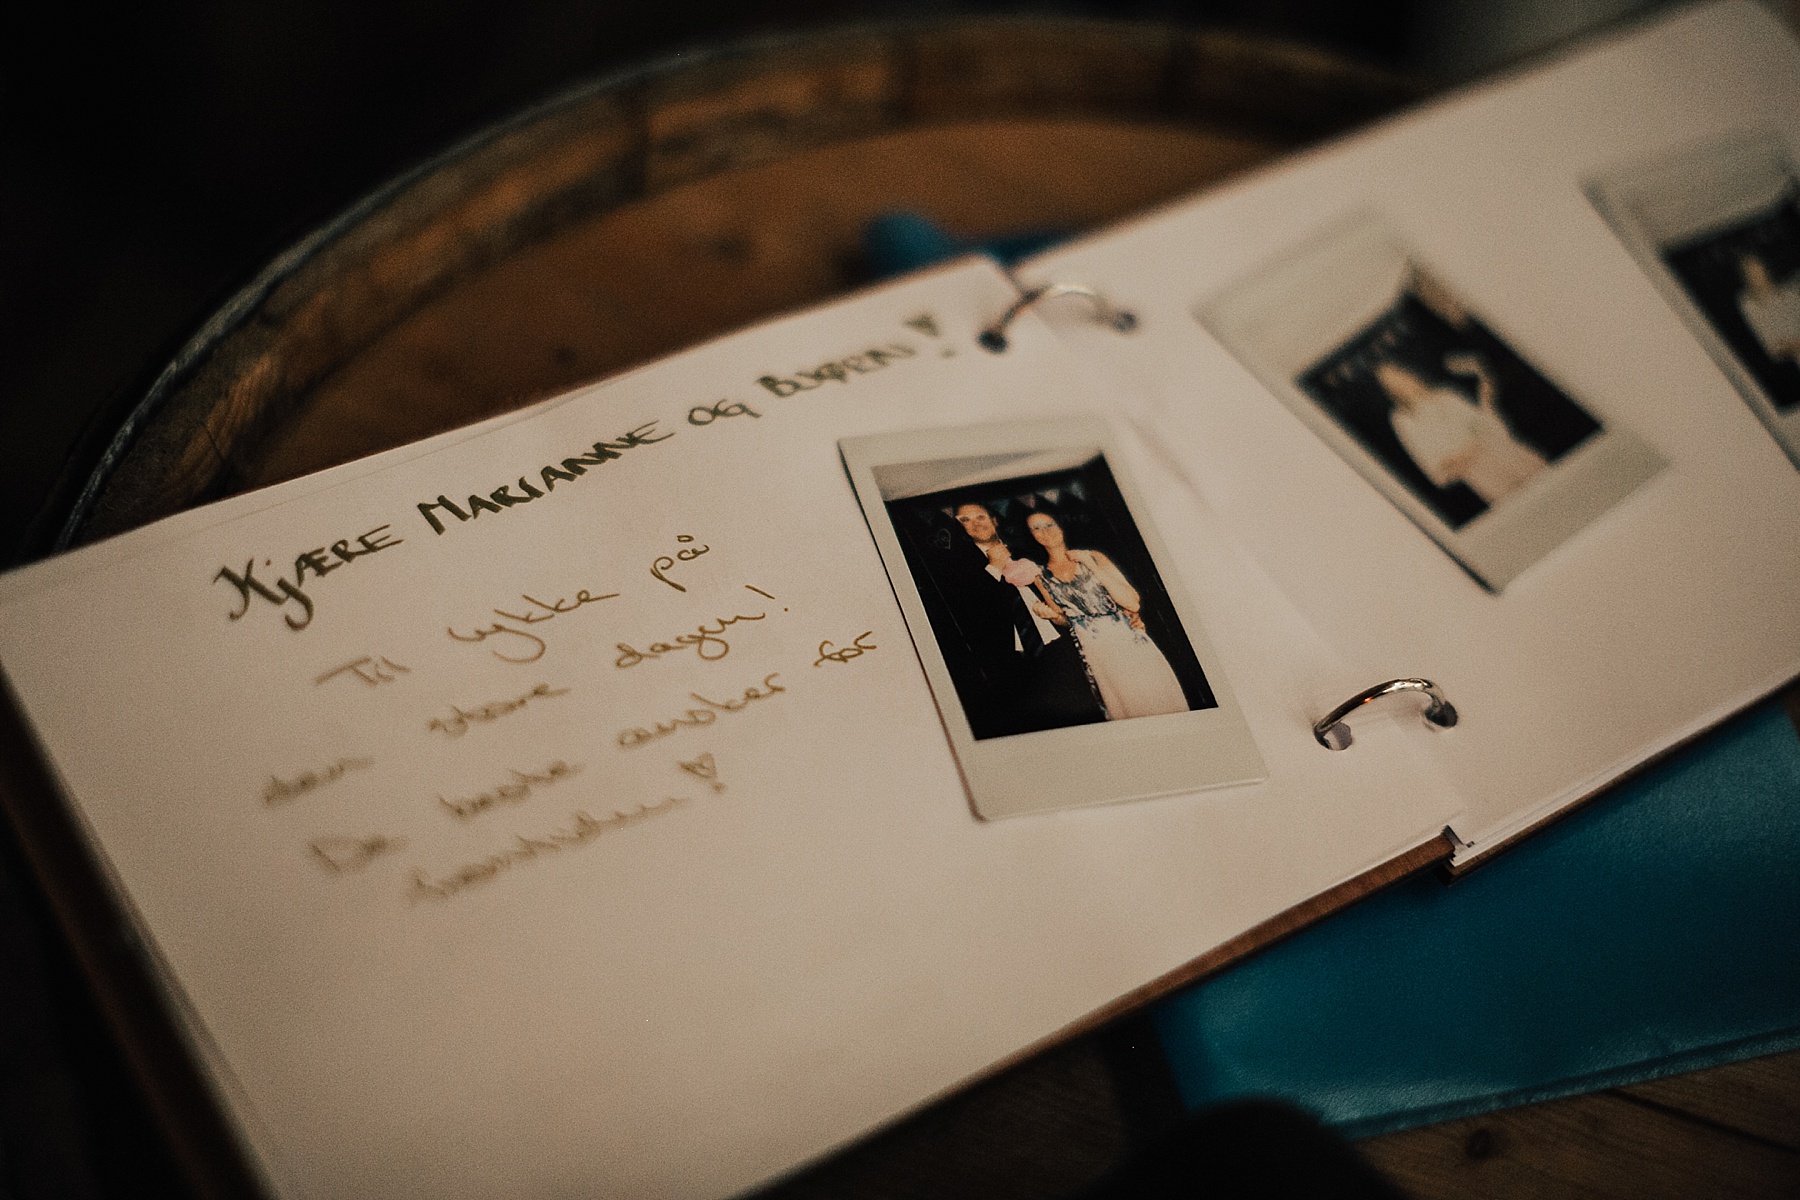 KJÆRE MARIANNE OG BJØRN!
Til lykke på
den store dagen!
De beste ønsker for
fremtiden!